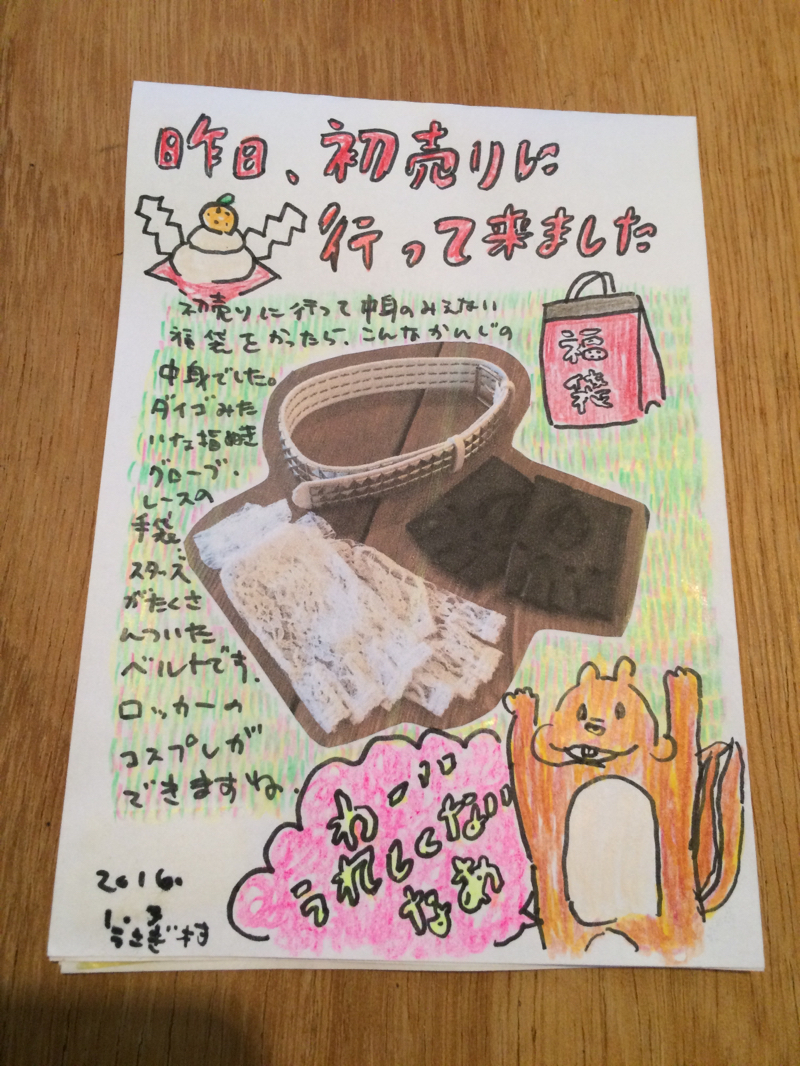 昨日、初売りに
行って来ました
初売りに行って中身のみえない
福袋をかったら、こんなかんじの
中身でした。
ダイゴみた
いな指ぬき
グローブ・
レースの
手袋、
スタッズ
がたくさ
んついた
ベルトです。
ロッカーの
コスプレが
できますね。
福
袋
わーい
うれしくない
なぁ
2016.
1.3
うさぎ村